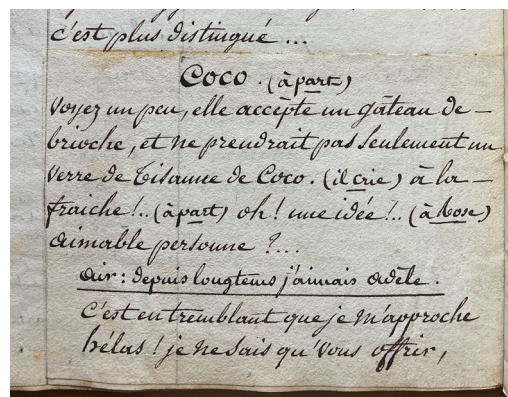 c'est plus distingué ...
Coco. (à part)
Voyez un peu, elle accèpte un gâteau de –
brioche, et ne prendrait pas seulement un
verre de tisanne de Coco. (il crie) à la –
fraiche !.. (à part) oh ! une idée !.. (à Rose)
aimable personne ?...
air : depuis longtems j'aimais adèle.
C'est en tremblant que je m'approche
hélas ! je ne sais qu'vous offrir,